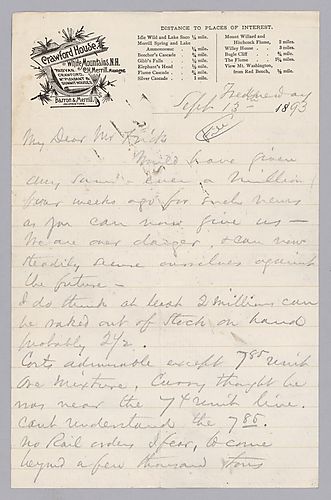 Crawford House,
White Mountains, N.H.
Barron & Merrill,
DISTANCE TO PLACES OF INTEREST.
Idle Wild and Lake Saco ⅛ mile.
Merrill Spring and Lake
Ammonoosuc ¾ mile.
Beecher's Cascade
Gibb's Falls
Elephant's Head
Flume Cascade
Silver Cascade
Mount Willard and
Hitchcock Flume, 2 miles.
Willey House 3 miles.
Bugle Cliff ¾ mile.
The Flume
View Mt. Washington,
from Red Bench, ⅜ mile.
Wednesday
Sept 13th 1893
My Dear Mr Frick
Would have given
any sum - even a million
four weeks ago for such news
as you can now give us —
We are over danger, & can now
steadily secure ourselves against
the future —
I do think at least 2 millions can
be raked out of Stock on hand
probably 2½.
Costs admirable except 785 unit
Ore Mixture, Curry thought he
was near the 7¼ unit line.
Cant understand the 785.
No Rail orders I fear, to come
beyond a few thousand tons